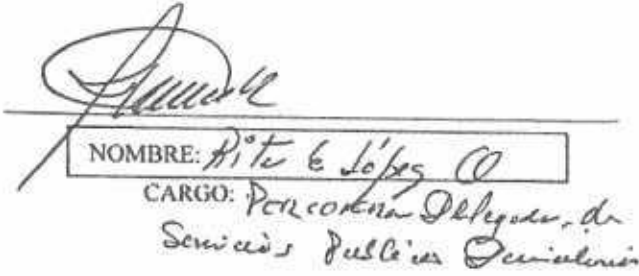 NOMBRE: Rita E López O
CARGO: Personera Delegada de
Servicios Públicos Domiciliarios